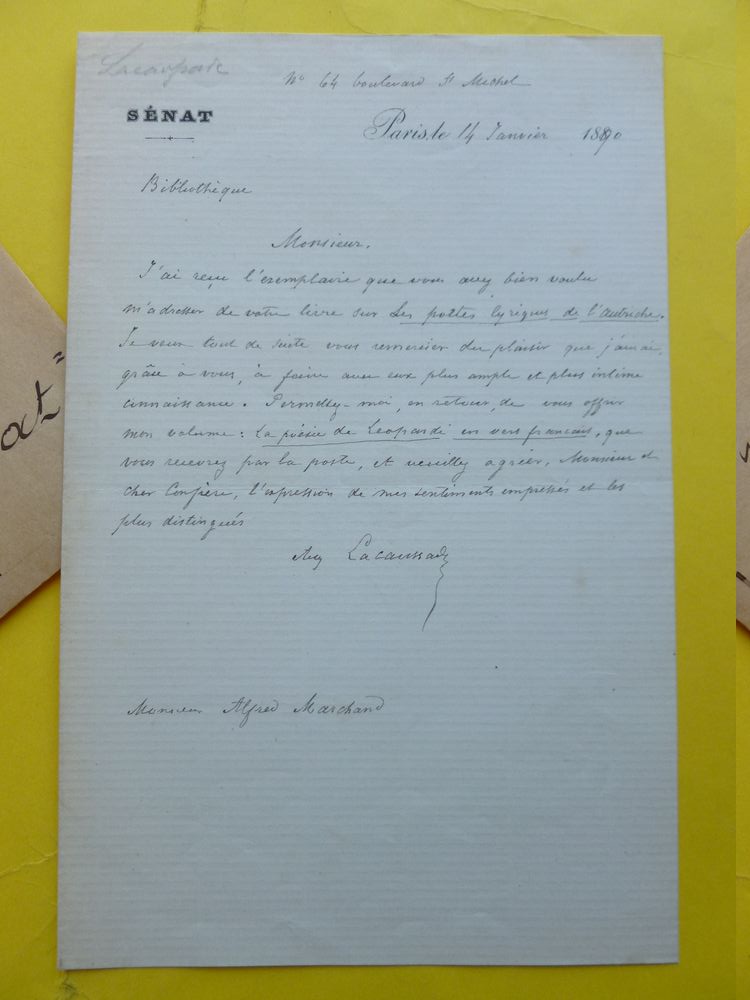 Lacaussade
No 64 boulevard St Michel
SÉNAT
Paris, le 14 Janvier 1890
Bibliothèque
Monsieur,
J'ai reçu l'exemplaire que vous avez bien voulu
m'adresser de votre livre sur Les poètes lyriques de l'Autriche.
Je veux tout de suite vous remercier du plaisir que j'aurai,
grâce à vous, à faire avec eux plus ample et plus intime
connaissance. Permettez-moi, en retour, de vous offrir
mon volume : La poésie de Leopardi en vers français, que
vous recevrez par la poste, et veuillez agréer, Monsieur et
cher Confrère, l'expression de mes sentiments empressés et les
plus distingués
Aug Lacaussade
Monsieur Alfred Marchand